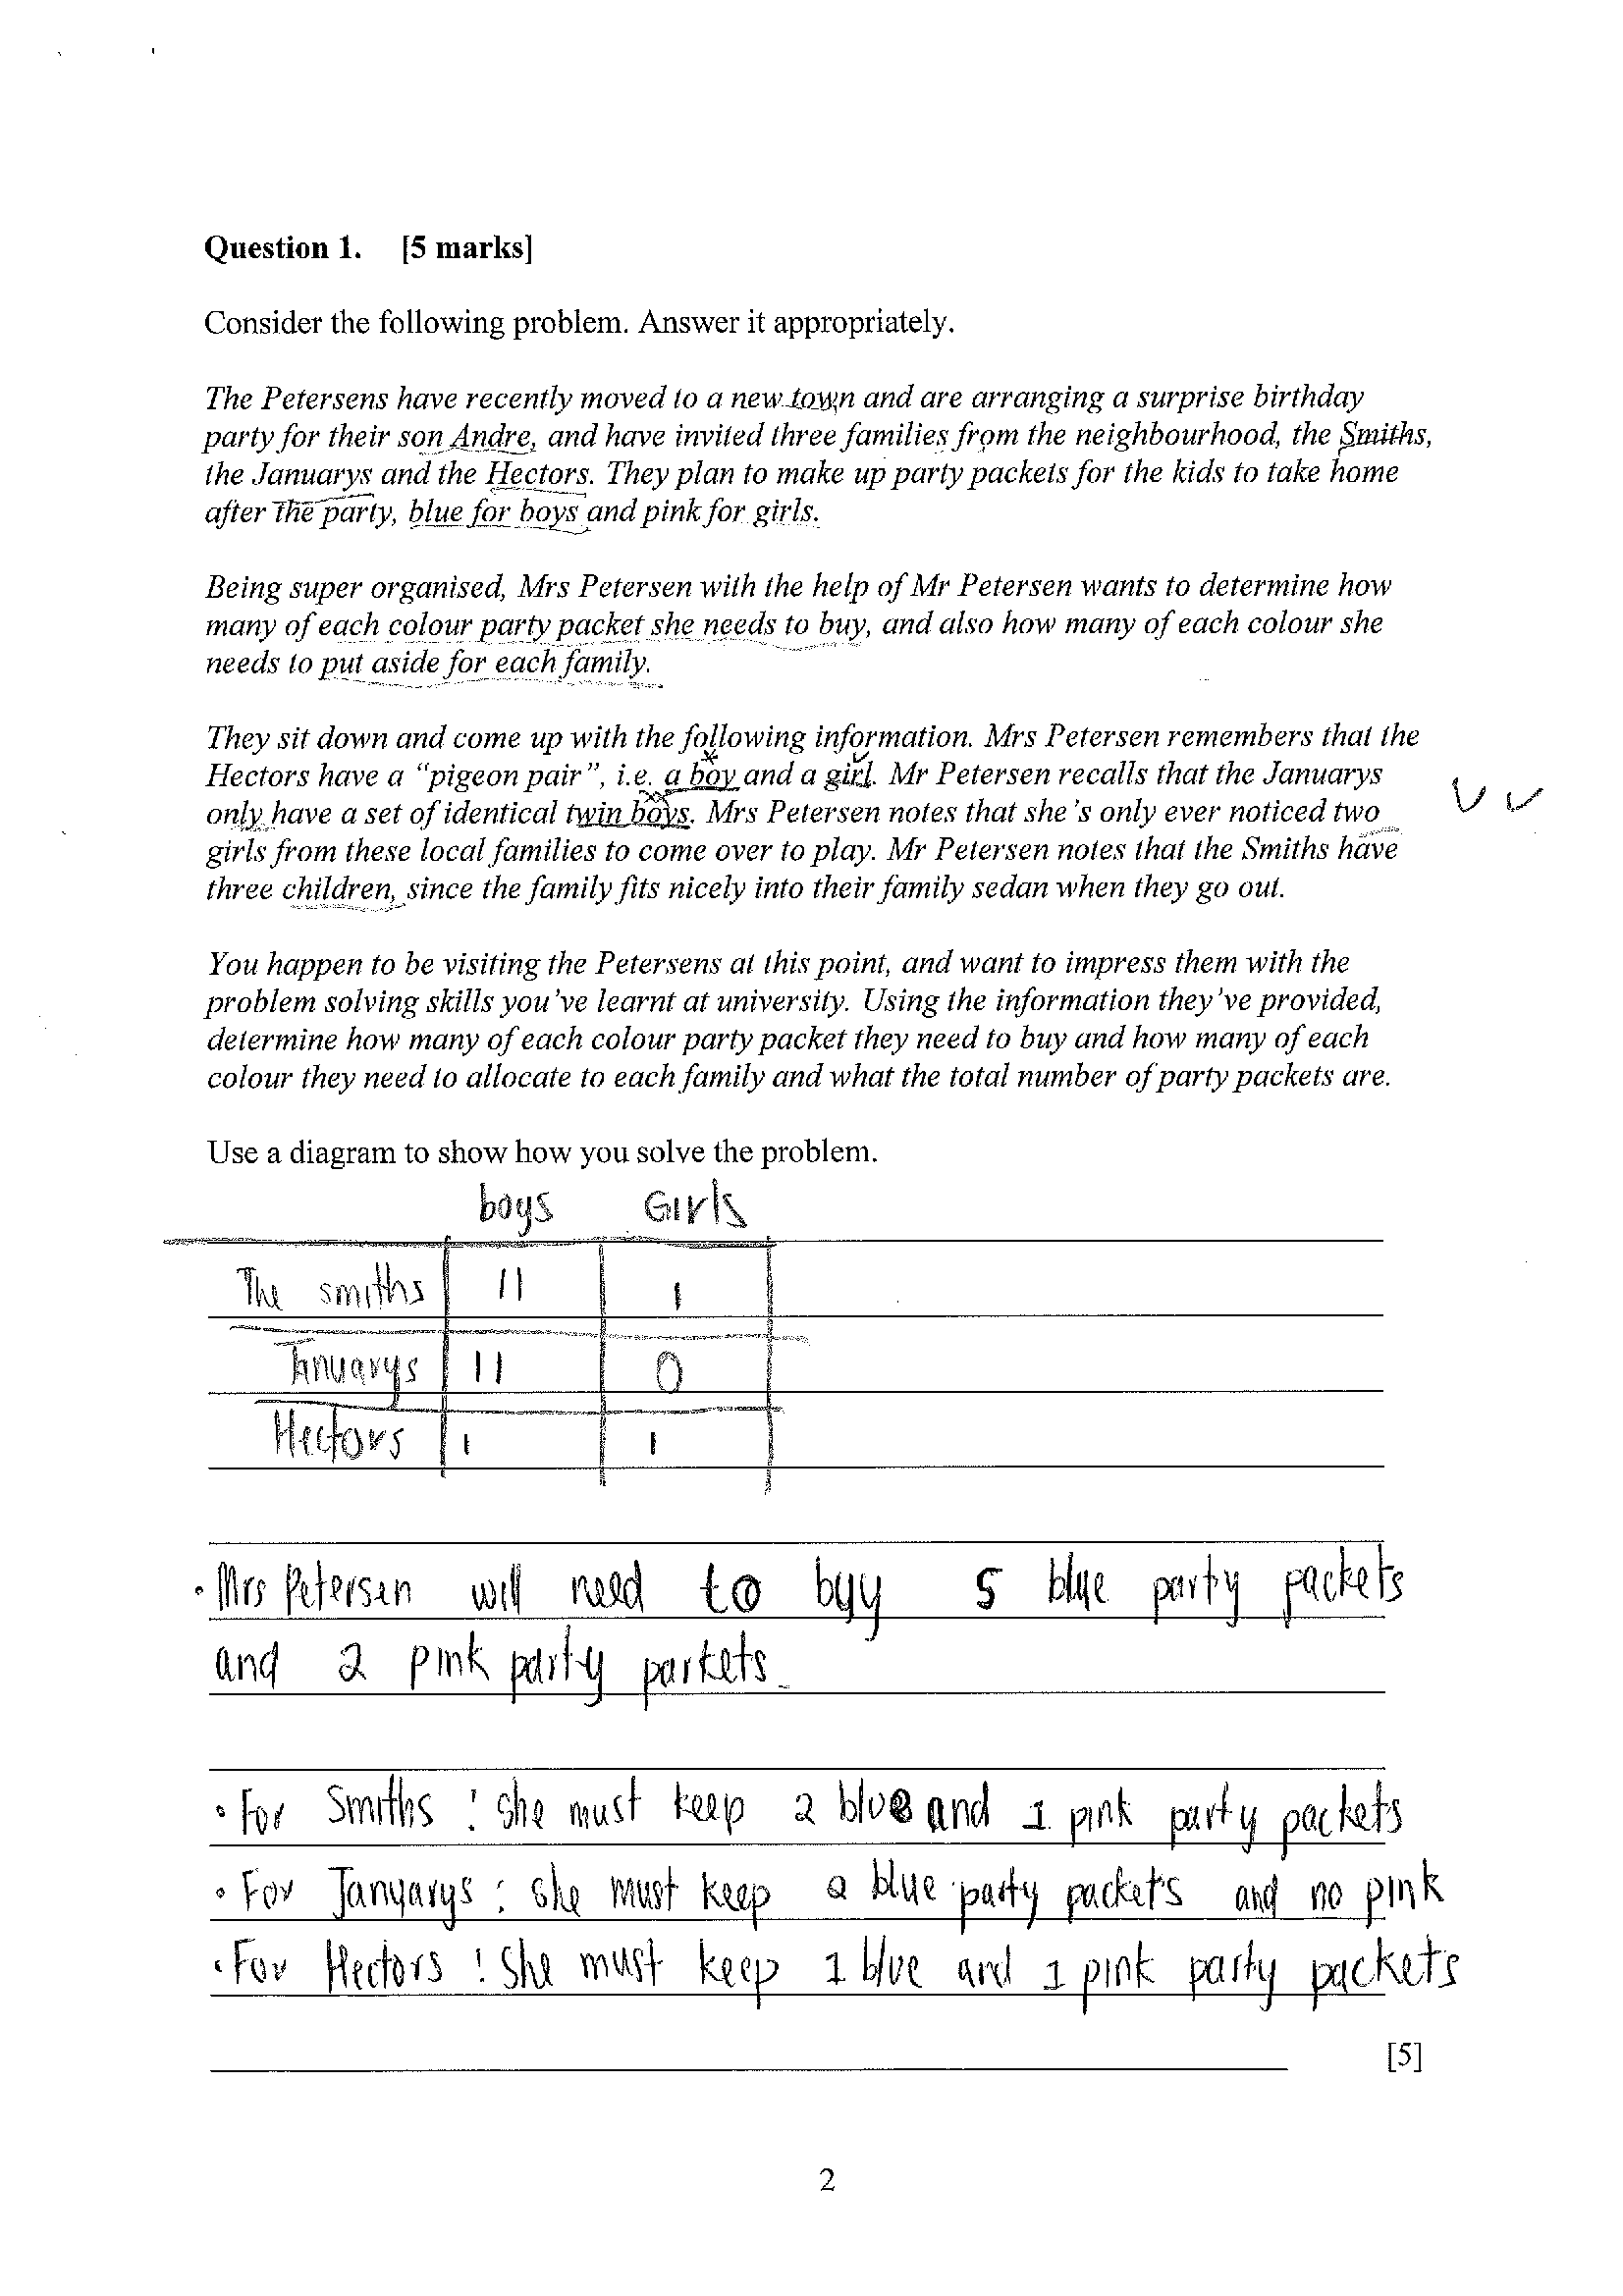 Question 1. [5 marks]
Consider the following problem. Answer it appropriately.
The Petersens have recently moved to a new town and are arranging a surprise birthday
party for their son Andre, and have invited three families from the neighbourhood, the Smiths,
the Januarys and the Hectors. They plan to make up party packets for the kids to take home
after the party, blue for boys and pink for girls.
Being super organised, Mrs Petersen with the help of Mr Petersen wants to determine how
many of each colour party packet she needs to buy, and also how many of each colour she
needs to put aside for each family.
They sit down and come up with the following information. Mrs Petersen remembers that the
Hectors have a "pigeon pair", i.e. a boy and a girl. Mr Petersen recalls that the Januarys
only have a set of identical twin boys. Mrs Petersen notes that she's only ever noticed two
girls from these local families to come over to play. Mr Petersen notes that the Smiths have
three children, since the family fits nicely into their family sedan when they go out.
You happen to be visiting the Petersens at this point, and want to impress them with the
problem solving skills you've learnt at university. Using the information they've provided,
determine how many of each colour party packet they need to buy and how many of each
colour they need to allocate to each family and what the total number of party packets are.
Use a diagram to show how you solve the problem.
boys Girls
The smiths 11 1
Januarys 11 0
Hectors 1 1
• Mrs Petersen will need to buy 5 blue party packets
and 2 pink party parkets.
• For Smiths : she must keep 2 blue and 1 pink party packets
• For Januarys : she must keep 2 blue party packets and no pink
• For Hectors : She must keep 1 blue and 1 pink party packets
[5]
2